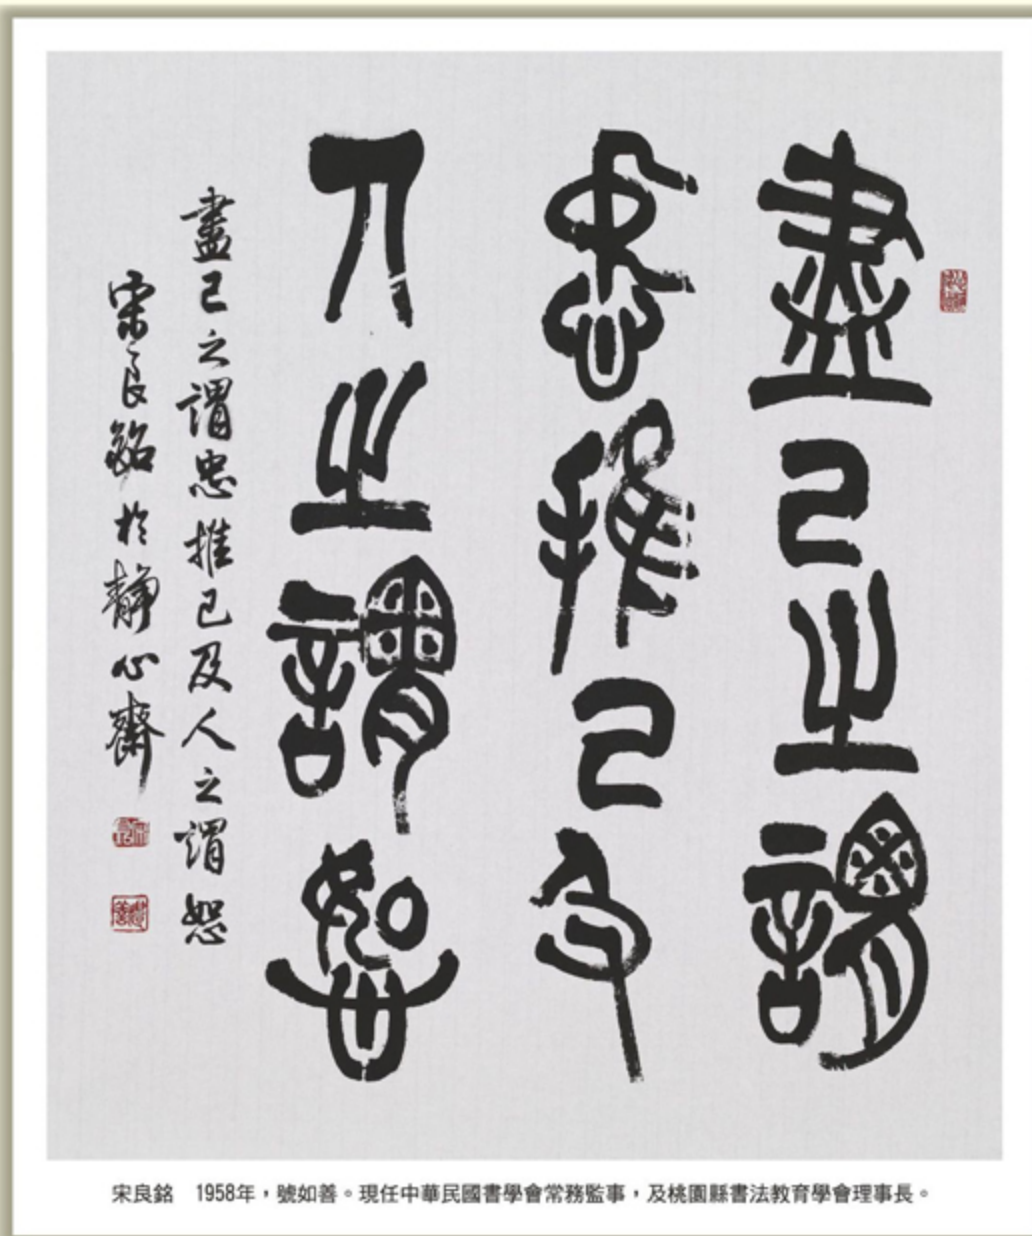 盡己之謂
忠推己及
人之謂恕
盡己之謂忠推己及人之謂恕
宋良銘於靜心齋
宋良銘　1958年，號如善。現任中華民國書學會常務監事，及桃園縣書法教育學會理事長。